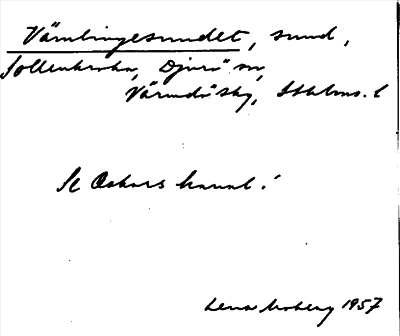 Vämlingesundet, sund,
Sollenkroka, Djurö sn,
Värmdö skg, Sthlms. l
Se Oskars kanal!
Lena Moberg 1957